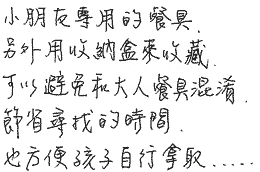 小朋友專用的餐具.
另外用收納盒來收藏.
可以避免和大人餐具混淆.
節省尋找的時間.
也方便孩子自行拿取.....